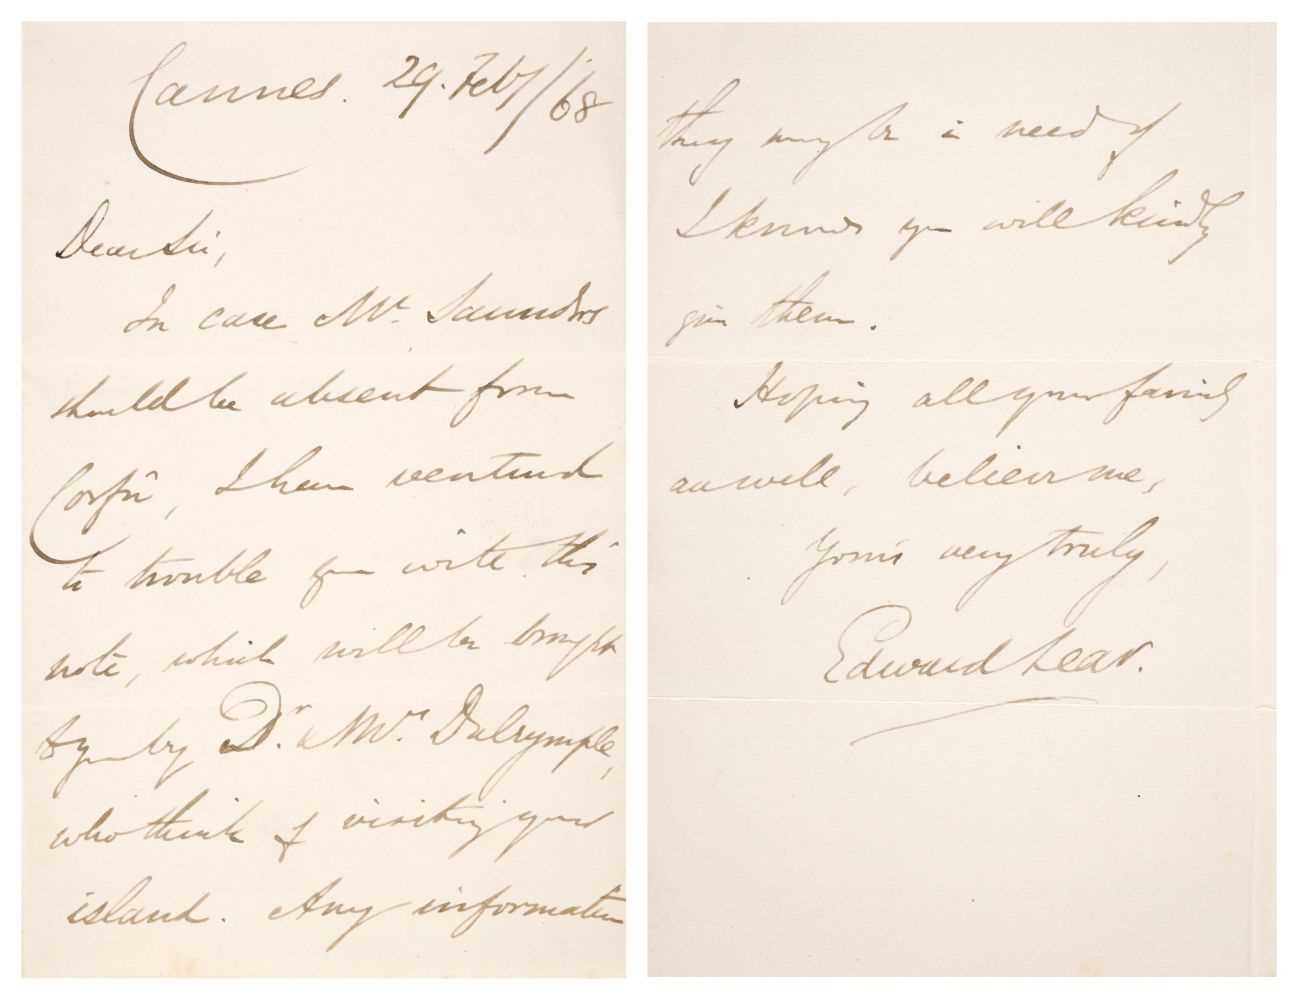 Cannes. 29. Feby/68
Dear Sir,
In case Mr. Saunders
should be absent from
Corfû, I have ventured
to trouble you with this
note, which will be brought
to you by Dr. & Mrs. Dalrymple,
who think of visiting your
island. Any information
they may be in need of
I know you will kindly
give them.
Hoping all your family
are well, believe me,
Yours very truly,
Edward Lear.